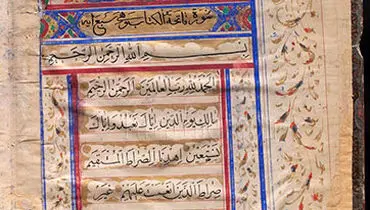 سورة فاتحة الكتاب وهي سبع آية
بِسْمِ اللَّهِ الرَّحْمَٰنِ الرَّحِيمِ
اَلْحَمْدُ لِلَّهِ رَبِّ الْعَالَمِينَ الرَّحْمَٰنِ الرَّحِيمِ
مَالِكِ يَوْمِ الدِّينِ اِيَّاكَ نَعْبُدُ وَاِيَّاكَ
نَسْتَعِينُ اِهْدِنَا الصِّرَاطَ الْمُسْتَقِيمَ
صِرَاطَ الَّذِينَ اَنْعَمْتَ عَلَيْهِمْ غَيْرِ